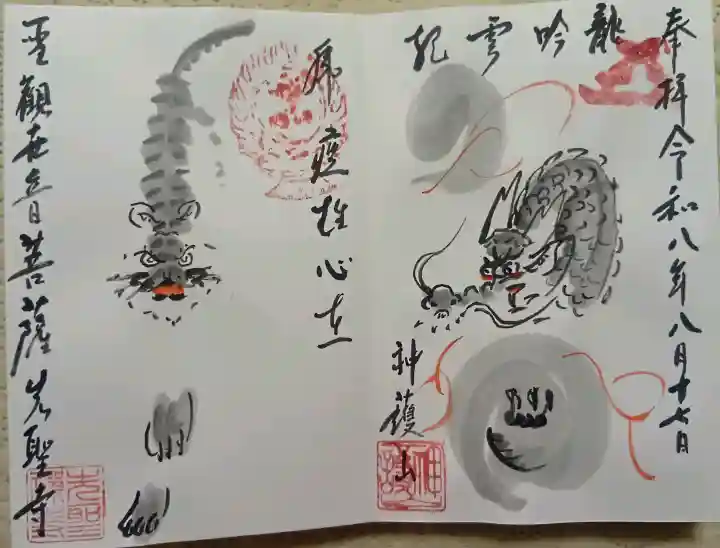 奉拝 令和八年八月十七日
龍吟雲起
神護山
虎痩雄心在
聖觀世音菩薩 先聖寺